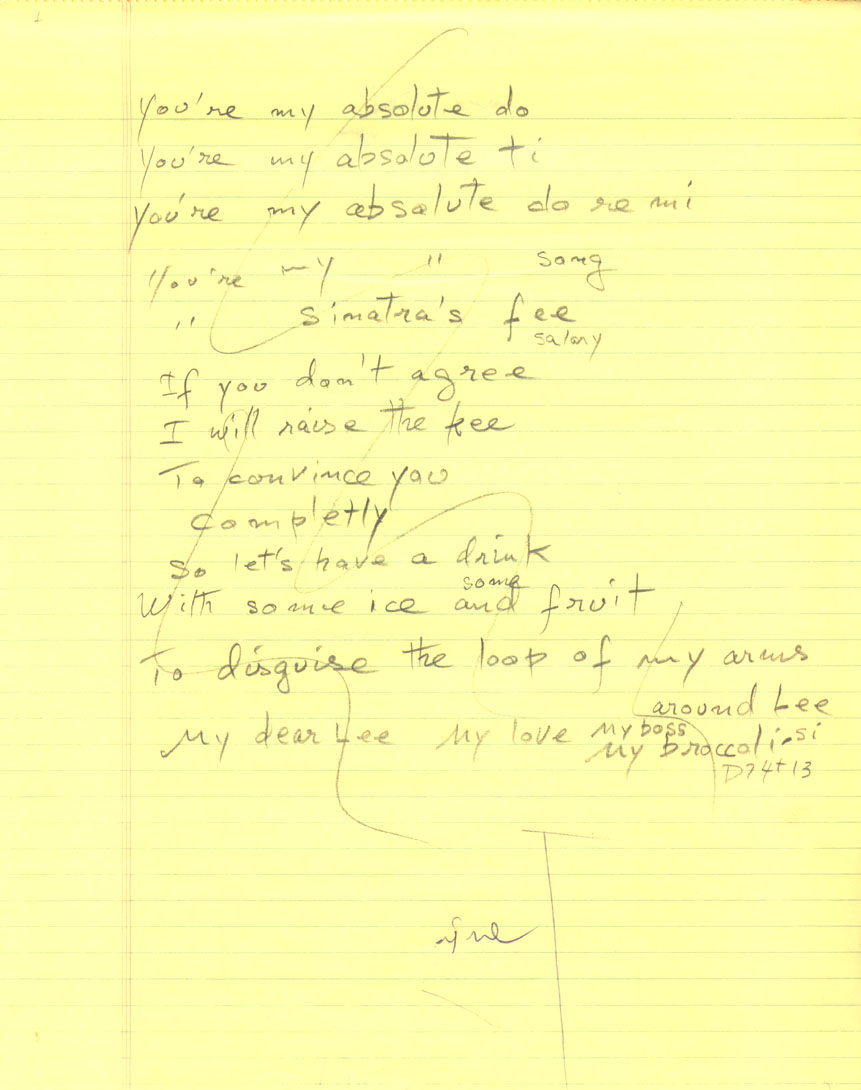 1
You're my absolute do
You're my absolute ti
You're my absolute do re mi
You're my " song
" Sinatra's fee
salary
If you don't agree
I will raise the kee
To convince you
completly
So let's have a drink
some
With some ice and fruit
To disguise the loop of my arms
around Lee
My dear Lee My love My boss
My broccoli-si